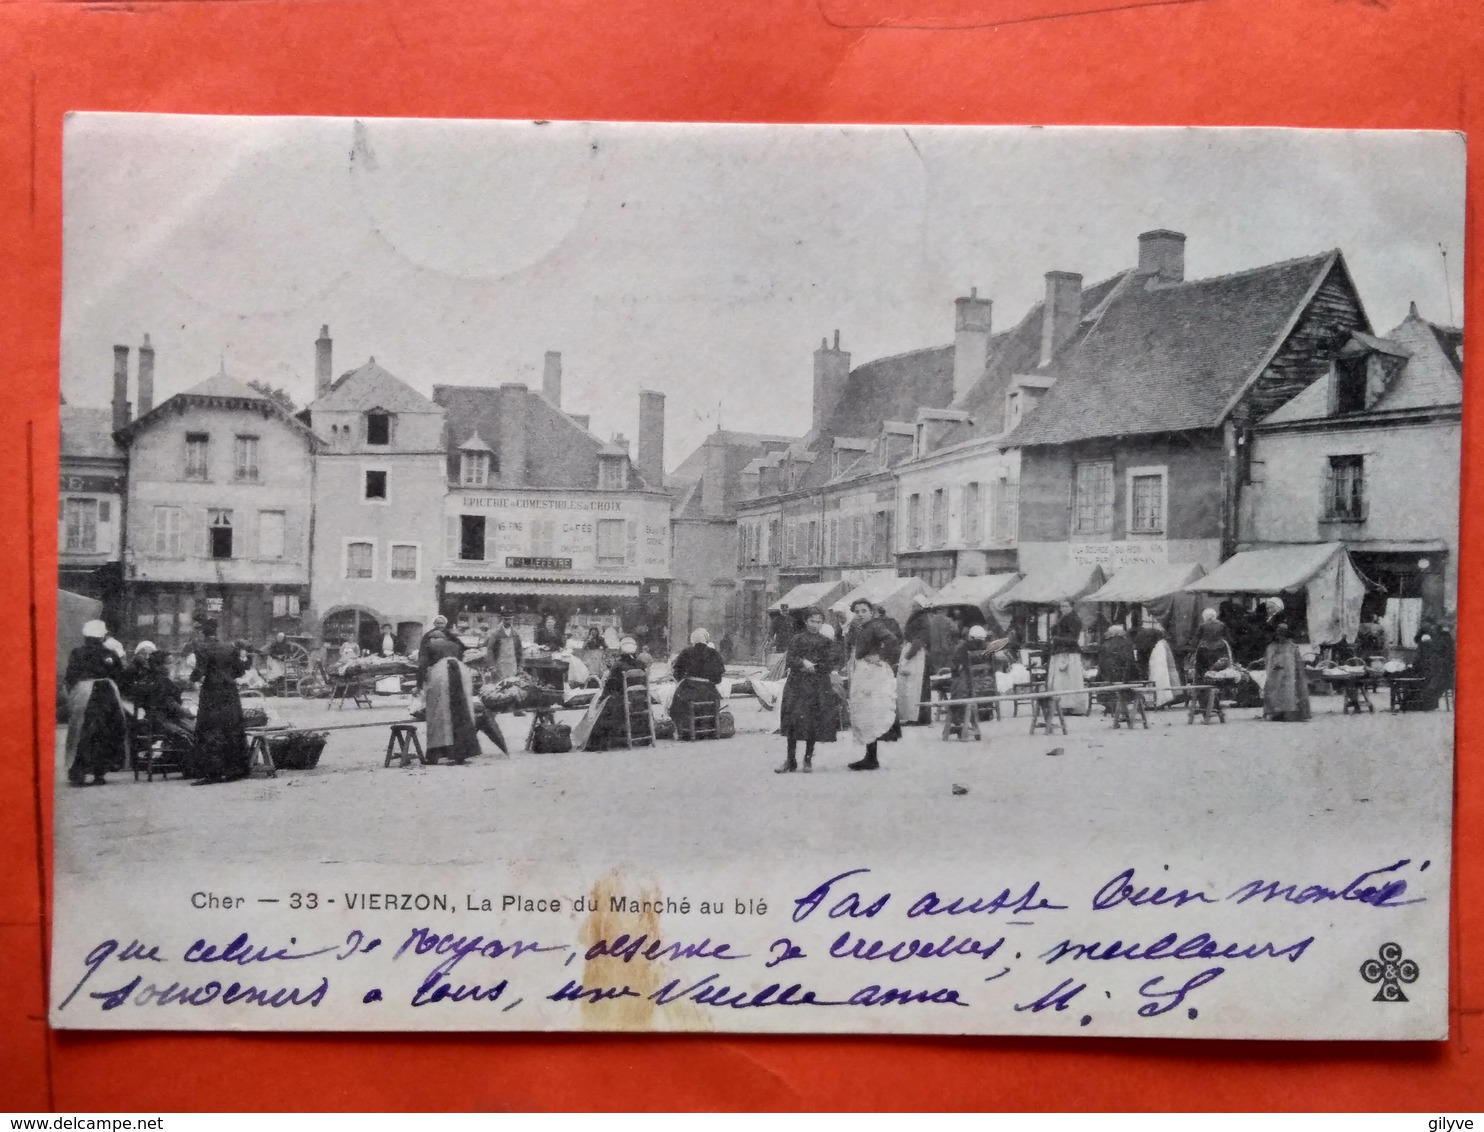 EPICERIE & COMESTIBLES DE CHOIX
CAFÉS
LEFEVRE
Cher — 33 - VIERZON, La Place du Marché au blé
Pas aussi bien monté
que celui de Royan, absence de crevettes, meilleurs
souvenirs a tous, une vieille amie M. S.
C C & C C
delcampe.net
gilyve